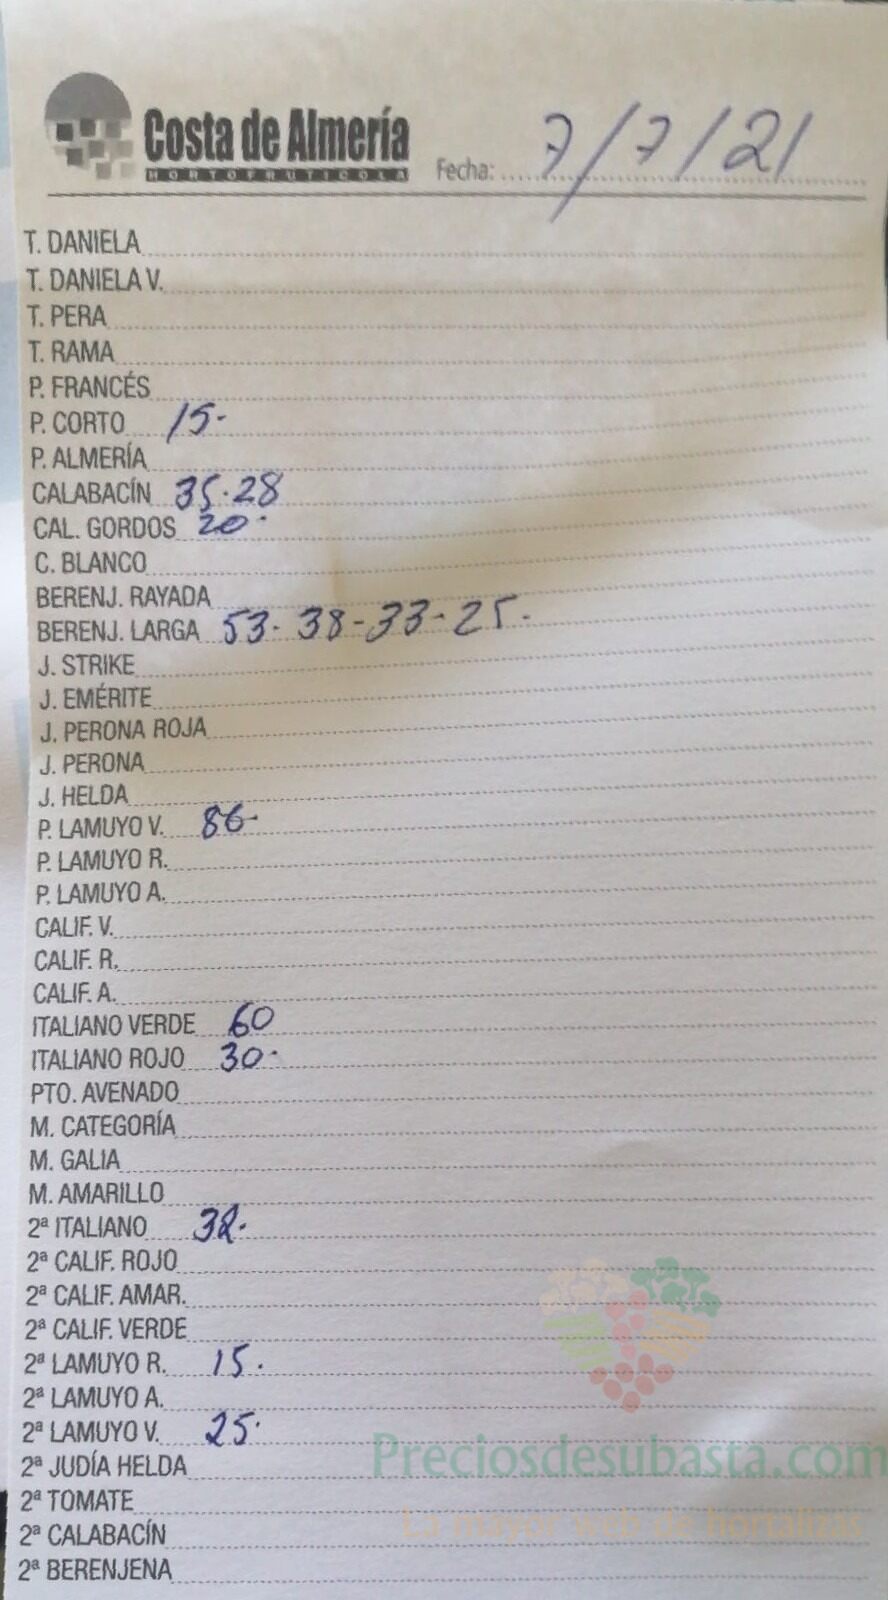 Costa de Almería
HORTOFRUTICOLA
Fecha: 7/7/21
T. DANIELA
T. DANIELA V.
T. PERA
T. RAMA
P. FRANCÉS
P. CORTO 15.
P. ALMERÍA
CALABACÍN 35.28
CAL. GORDOS 20.
C. BLANCO
BERENJ. RAYADA
BERENJ. LARGA 53. 38-33-25.
J. STRIKE
J. EMÉRITE
J. PERONA ROJA
J. PERONA
J. HELDA
P. LAMUYO V. 86.
P. LAMUYO R.
P. LAMUYO A.
CALIF. V.
CALIF. R.
CALIF. A.
ITALIANO VERDE 60
ITALIANO ROJO 30.
PTO. AVENADO
M. CATEGORÍA
M. GALIA
M. AMARILLO
2ª ITALIANO 32.
2ª CALIF. ROJO
2ª CALIF. AMAR.
2ª CALIF. VERDE
2ª LAMUYO R. 15.
2ª LAMUYO A.
2ª LAMUYO V. 25.
2ª JUDÍA HELDA
2ª TOMATE
2ª CALABACÍN
2ª BERENJENA
Preciosdesubasta.com
La mayor web de hortalizas